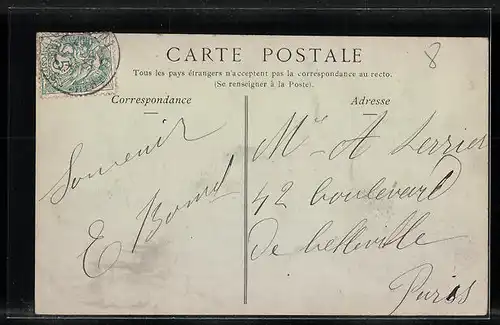 CARTE POSTALE
Tous les pays étrangers n'acceptent pas la correspondance au recto.
(Se renseigner à la Poste).
Correspondance
Adresse
8
Souvenir
E
Mr A
42 boulevard
de belleville
Paris